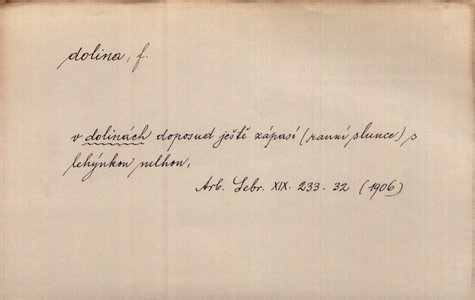 dolina, f.
v dolinách doposud ještě zápasí (ranní slunce) s
lehýnkou mlhou,
Arb. Sebr. XIX. 233-32 (1906)